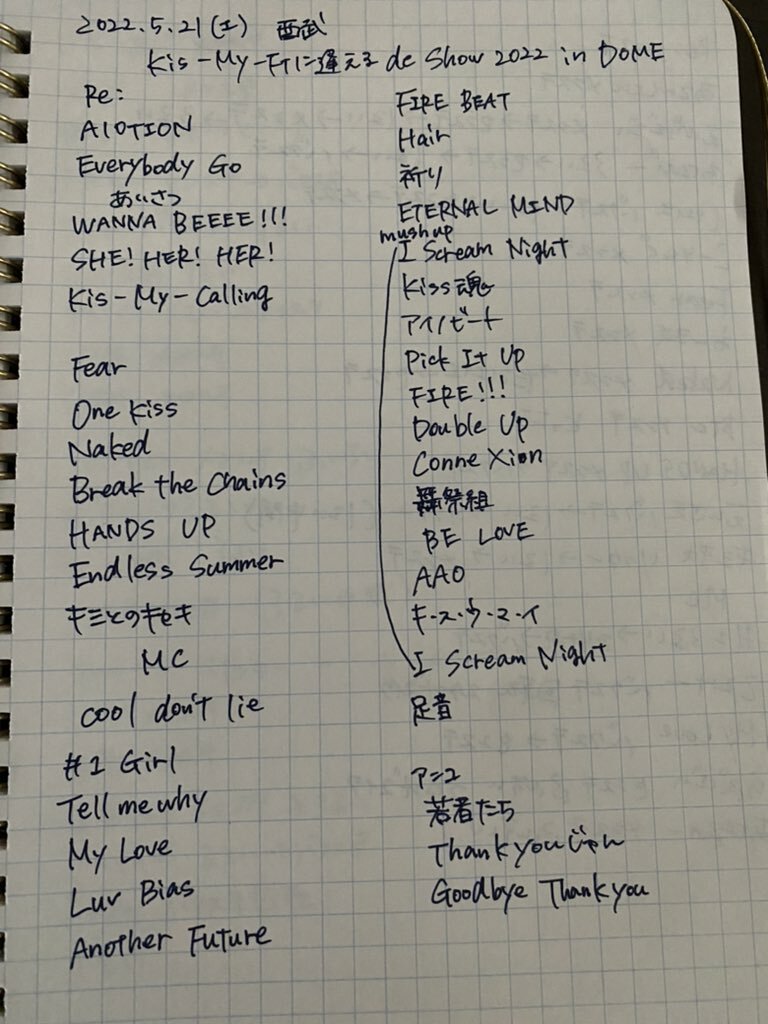 2022.5.21(土) 西武
Kis-My-Ftに逢える de Show 2022 in DOME
Re:
A1OTION
Everybody Go
あいさつ
WANNA BEEEE!!!
SHE! HER! HER!
Kis-My-Calling
Fear
One Kiss
Naked
Break the Chains
HANDS UP
Endless Summer
キミとのキセキ
MC
cool don't lie
#1 Girl
Tell me why
My Love
Luv Bias
Another Future
FIRE BEAT
Hair
祈り
ETERNAL MIND
mush up
I Scream Night
Kiss魂
アイノビート
Pick It Up
FIRE!!!
Double Up
ConneXion
舞祭組
BE LOVE
AAO
キ・ス・ウ・マ・イ
I Scream Night
足音
アニコ
若者たち
Thank youじゃん
Goodbye Thank you